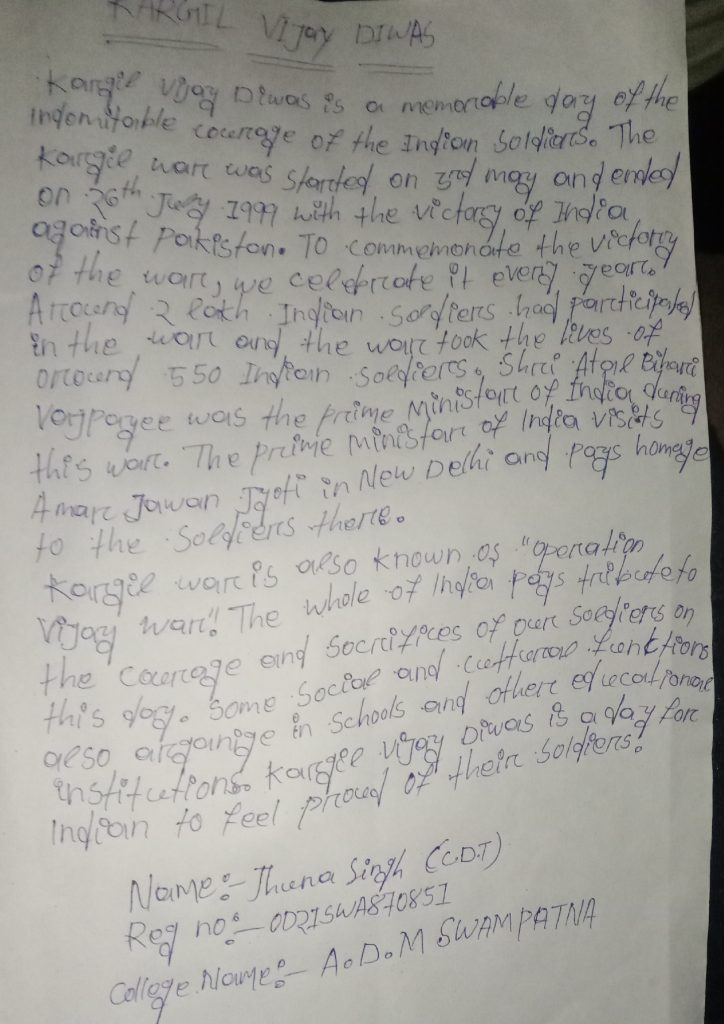 KARGIL VIJay DIWAS
Kargil Vijay Diwas is a memorable day of the
indomitable courage of the Indian Soldiers. The
Kargil war was started on 3rd may and ended
on 26th July 1999 with the victory of India
against Pakistan. To commemorate the victory
of the war, we celebrate it every year.
Around 2 lakh Indian soldiers had participated
in the war and the war took the lives of
around 550 Indian soldiers. Shri Atal Bihari
Vajpayee was the prime Ministar of India during
this war. The prime Ministar of India visits
Amar Jawan Jyoti in New Delhi and pays homage
to the Soldiers there.
Kargil war is also known as "operation
Vijay war". The whole of India pays tribute to
the courage and Sacrifices of our soldiers on
this day. Some Social and cultural functions
also arganige in Schools and other educational
institutions. Kargil Vijay Diwas is a day for
Indian to feel proud of their soldiers.
Name:- Jhuna Singh (CDT)
Reg no:- OD21SWA870851
College Name:- A.D.M SWAMPATNA